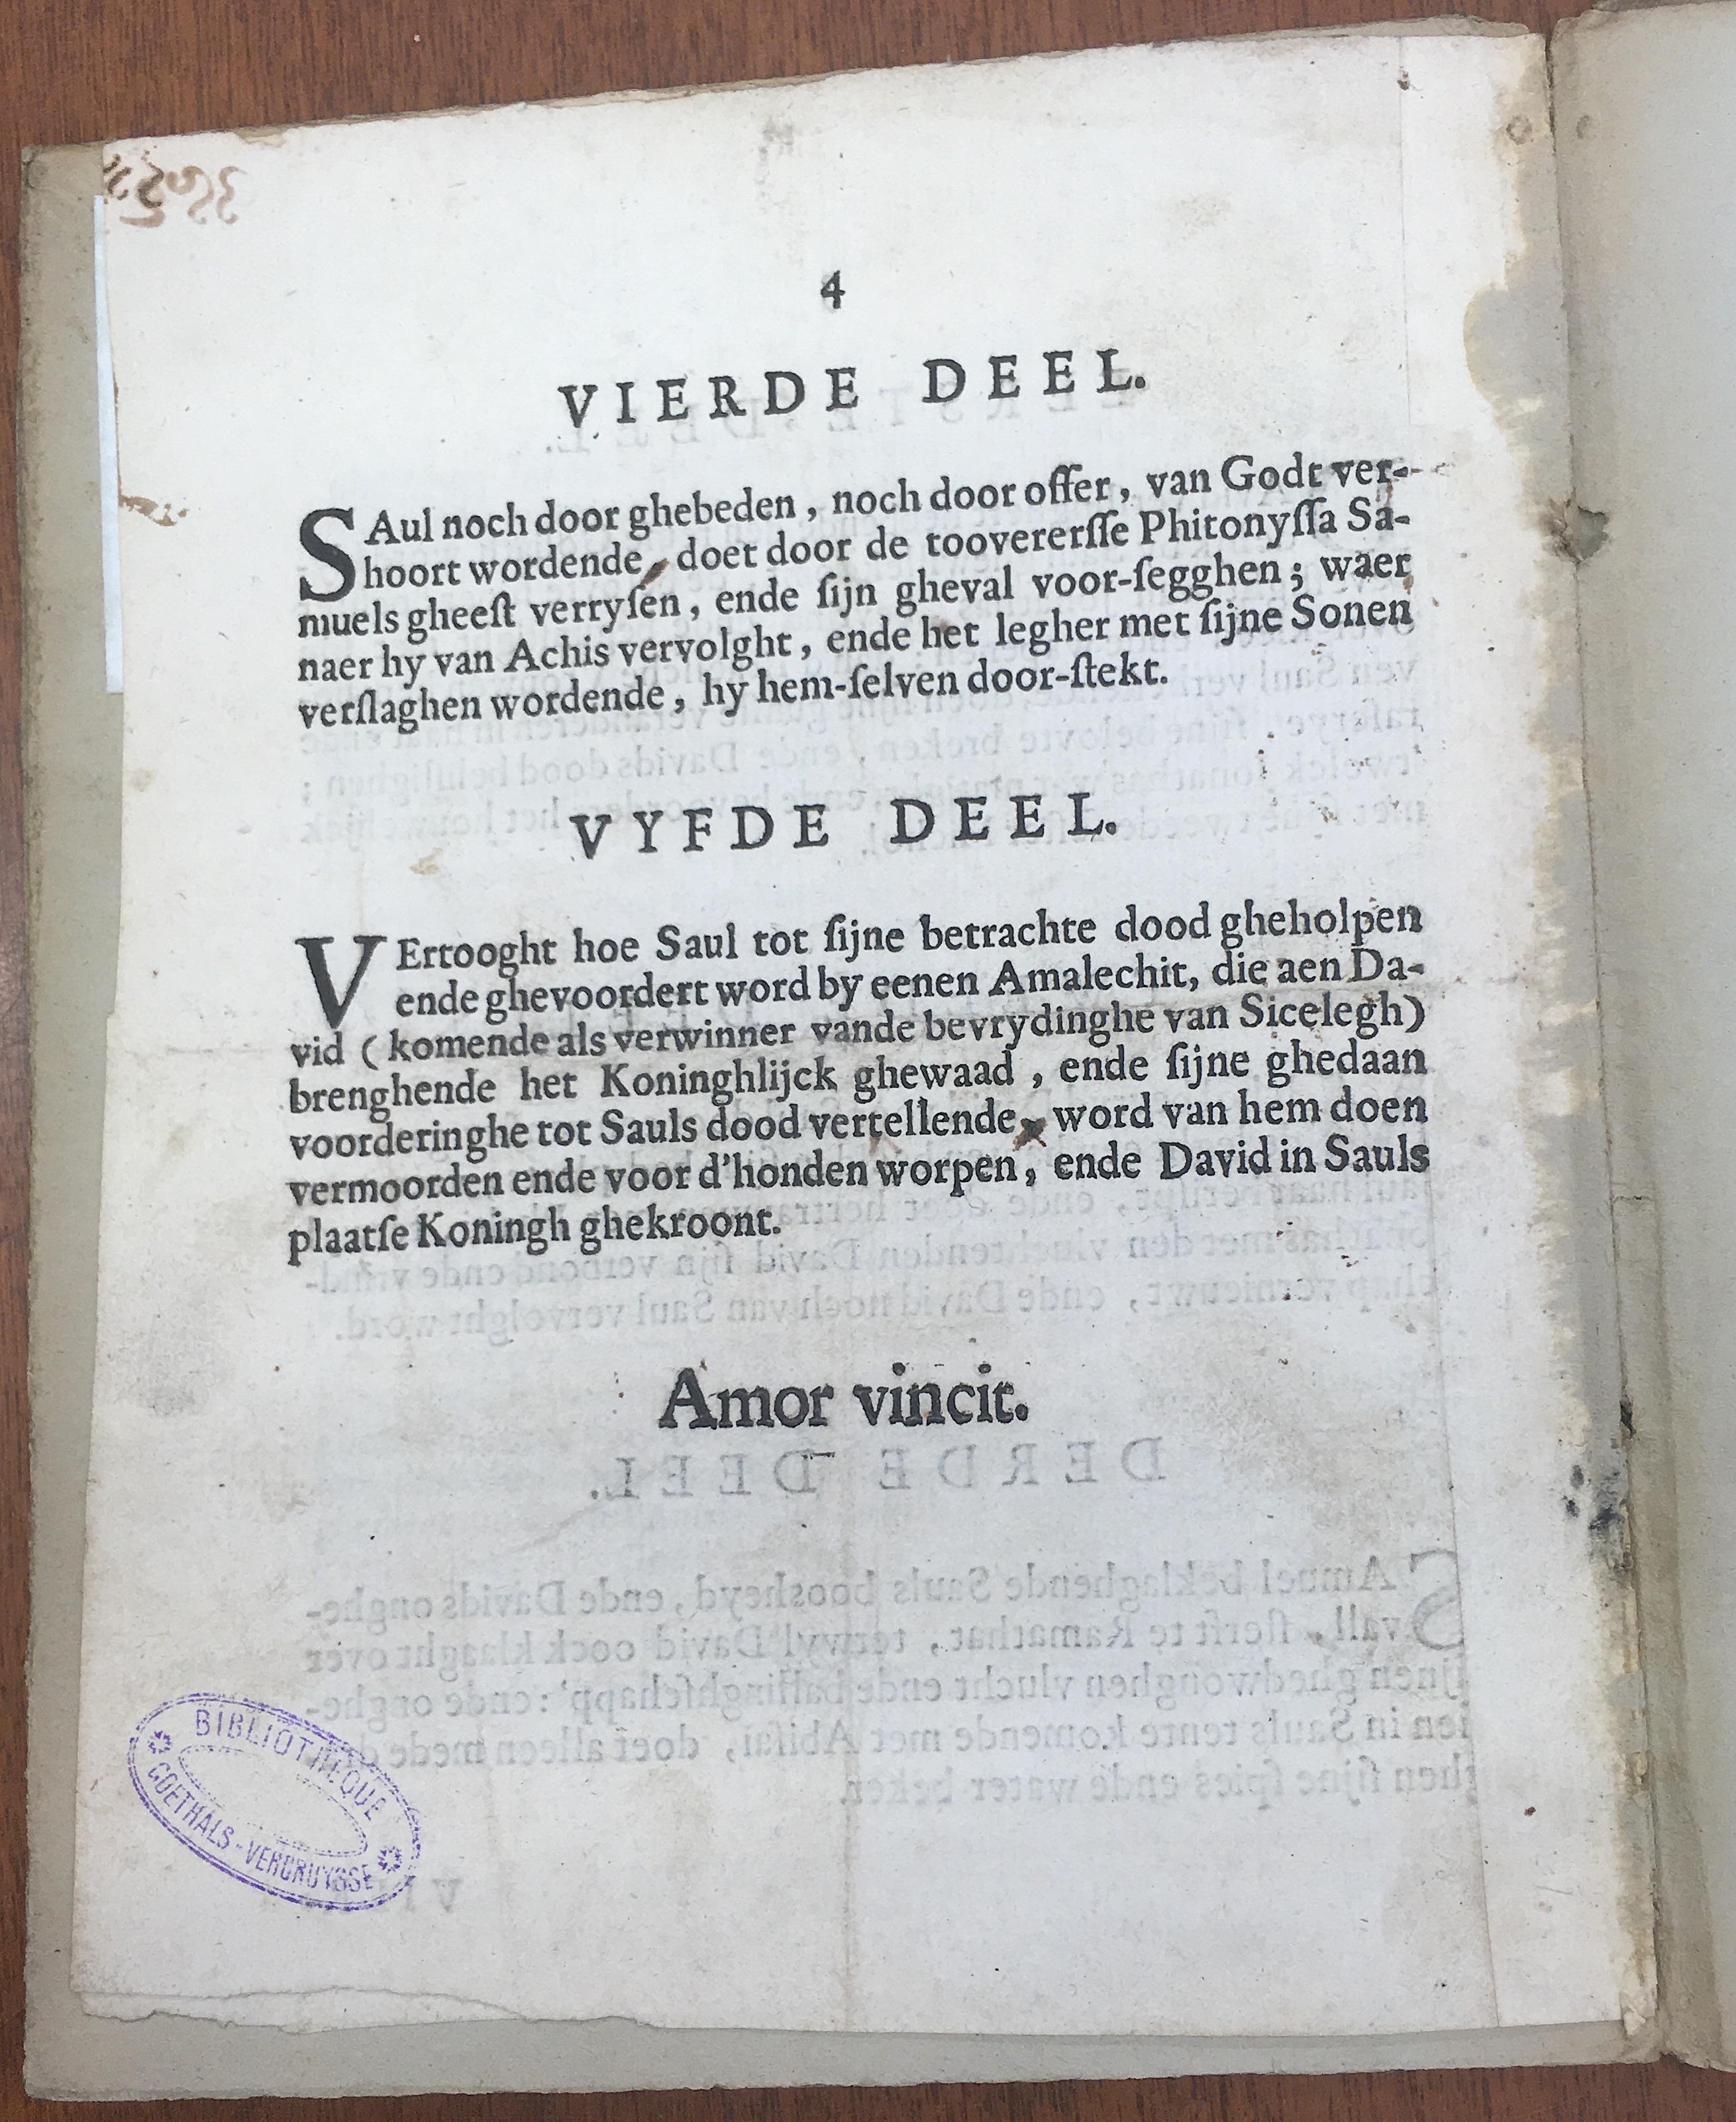 4
VIERDE DEEL.
SAul noch door ghebeden, noch door offer, van Godt ver-
hoort wordende, doet door de toovererſſe Phitonyſſa Sa-
muels gheeſt verryſen, ende ſijn gheval voor-ſegghen; waer
naer hy van Achis vervolght, ende het legher met ſijne Sonen
verſlaghen wordende, hy hem-ſelven door-ſtekt.
VYFDE DEEL.
VErtooght hoe Saul tot ſijne betrachte dood gheholpen
ende ghevoordert word by eenen Amalechit, die aen Da-
vid (komende als verwinner vande bevrydinghe van Sicelegh)
brenghende het Koninghlijck ghewaad, ende ſijne ghedaan
voorderinghe tot Sauls dood vertellende, word van hem doen
vermoorden ende voor d'honden worpen, ende David in Sauls
plaatſe Koningh ghekroont.
Amor vincit.
BIBLIOTHEQUE
GOETHALS-VERCRUYSSE